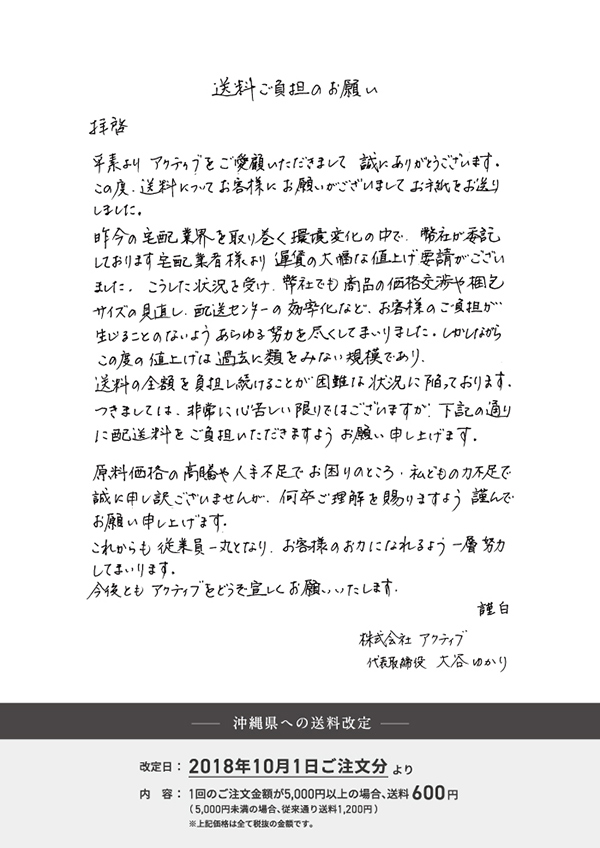 送料ご負担のお願い
拝啓
平素より アクティブをご愛顧いただきまして 誠にありがとうございます。
この度、送料についてお客様にお願いがございましてお手紙をお送り
しました。
昨今の宅配業界を取り巻く環境変化の中で、弊社が委託
しております宅配業者様より運賃の大幅な値上げ要請がござい
ました。こうした状況を受け、弊社でも商品の価格交渉や梱包
サイズの見直し、配送センターの効率化など、お客様のご負担が
生じることのないようあらゆる努力を尽くしてまいりました。しかしながら
この度の値上げは過去に類をみない規模であり、
送料の全額を負担し続けることが困難な状況に陥っております。
つきましては、非常に心苦しい限りではございますが、下記の通り
に配送料をご負担いただきますようお願い申し上げます。
原料価格の高騰や人手不足でお困りのところ、私どもの力不足で
誠に申し訳ございませんが、何卒ご理解を賜りますよう 謹んで
お願い申し上げます。
これからも従業員一丸となり、お客様のお力になれるよう一層努力
してまいります。
今後とも アクティブをどうぞ宜しくお願いいたします。
謹白
株式会社 アクティブ
代表取締役 大谷ゆかり
沖縄県への送料改定
改定日：2018年10月1日ご注文分より
内　容：1回のご注文金額が5,000円以上の場合、送料600円
（5,000円未満の場合、従来通り送料1,200円）
※上記価格は全て税抜の金額です。